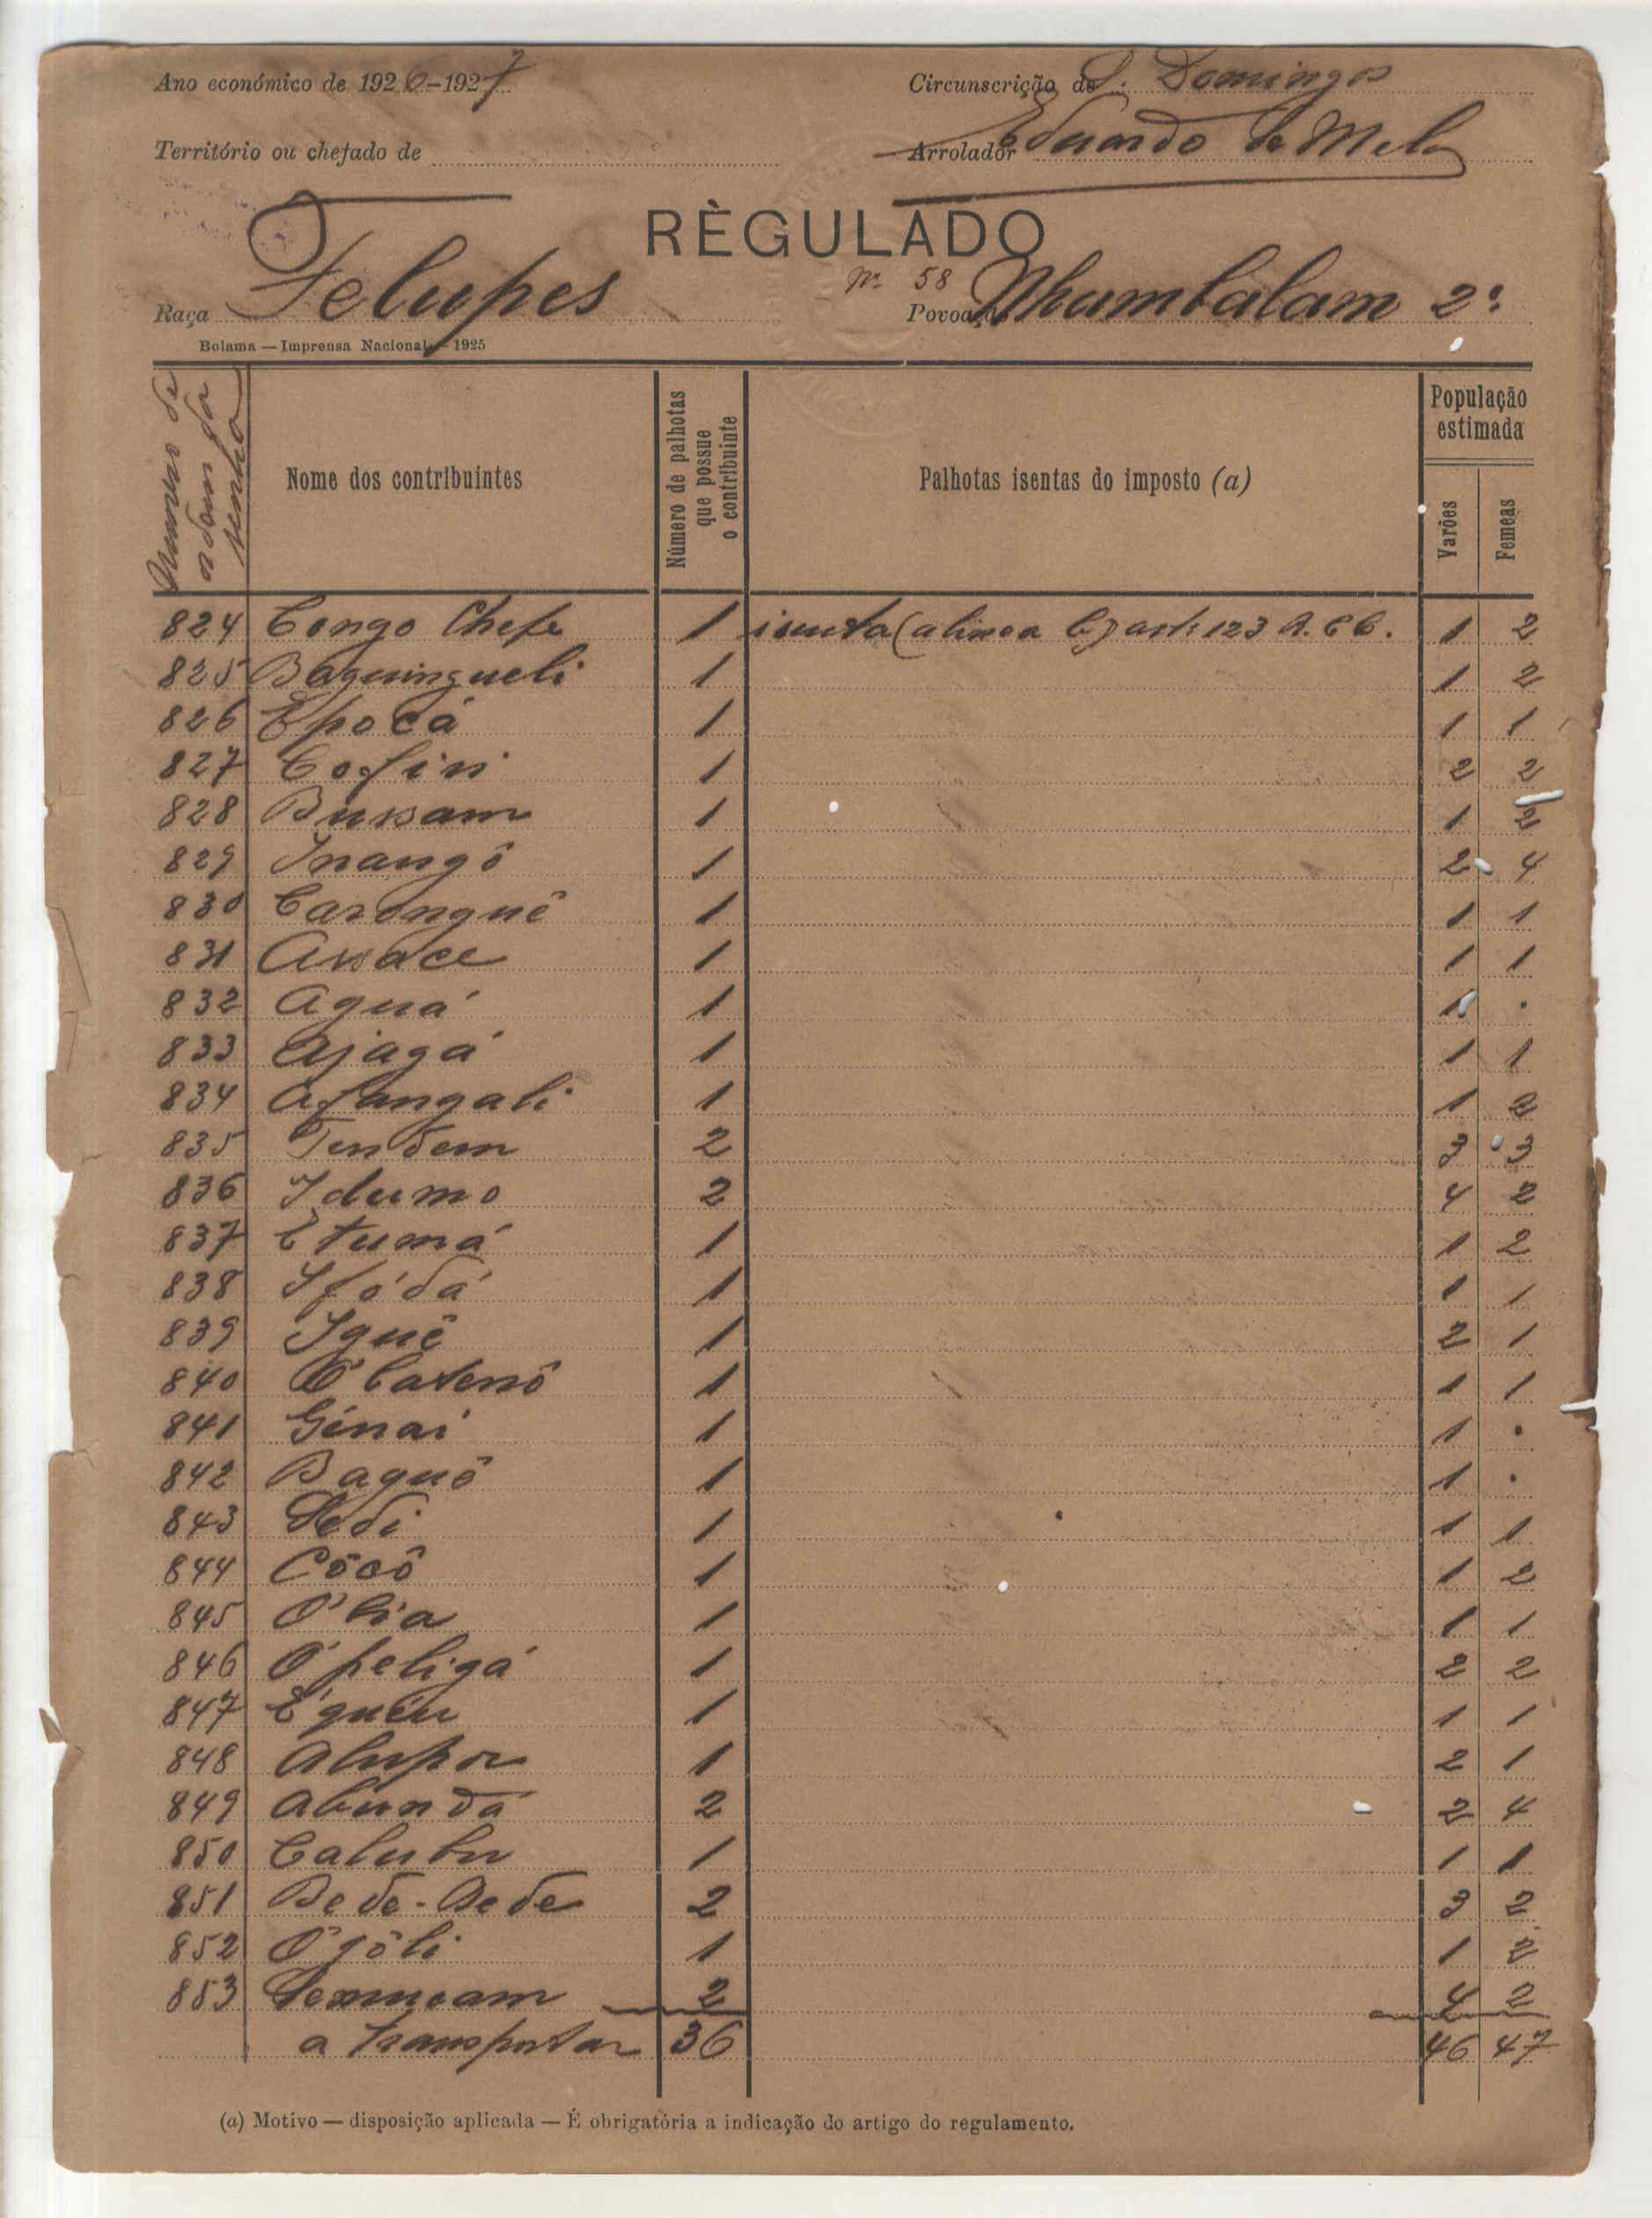 Ano económico de 1926-1927
Circunscrição de S. Domingos
Território ou chefado de
Arrolador Eduardo de Melo
RÈGULADO
Nº 58
Raça Felupes
Povoação Nhambalam 2º
Bolama — Imprensa Nacional — 1925
Numeros de ordem da senha
Nome dos contribuintes
Número de palhotas que possue o contribuinte
Palhotas isentas do imposto (a)
População estimada
Varões
Femeas
824 Congo Chefe 1 isenta (alinea b) artº 123 R.C.C. 1 2
825 Baguingueli 1 1 2
826 Epocá 1 1 1
827 Cofiri 1 2 2
828 Bussam 1 1 2
829 Inangô 1 2 4
830 Caronguê 1 1 1
831 Assace 1 1 1
832 Aguá 1 1 .
833 Ajagá 1 1 1
834 Afangali 1 1 2
835 Tendem 2 3 3
836 Idumo 2 4 2
837 Etumá 1 1 2
838 Ifódá 1 1 1
839 Iguê 1 2 1
840 O'batenô 1 1 1
841 Génai 1 1 .
842 Baguê 1 1 .
843 Sedi 1 1 1
844 Côcô 1 1 2
845 O'bia 1 1 1
846 O'peligá 1 2 2
847 E'guéu 1 1 1
848 Alupor 1 2 1
849 Abundá 2 2 4
850 Calubu 1 1 1
851 Bede-Bede 2 3 2
852 O'jôli 1 1 2
853 2 4 2
a transportar 36 46 47
(a) Motivo — disposição aplicada — É obrigatória a indicação do artigo do regulamento.